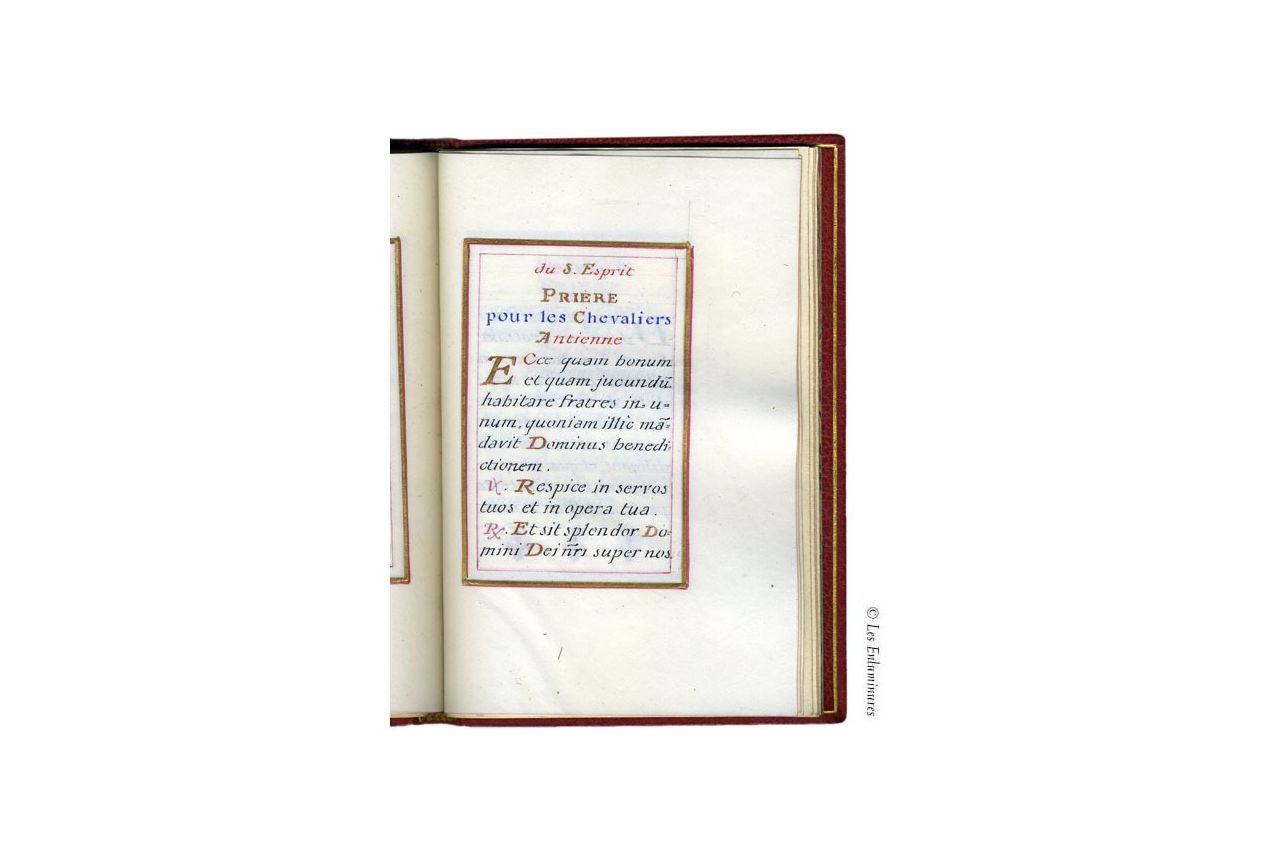 du S. Esprit
PRIÈRE
pour les Chevaliers
Antienne
ECce quam bonum
et quam jucundũ
habitare fratres in u=
num, quoniam illic mã=
davit Dominus benedi=
ctionem.
℣. Respice in servos
tuos et in opera tua.
℟. Et sit splendor Do=
mini Dei nr̃i super nos
© Les Enluminures